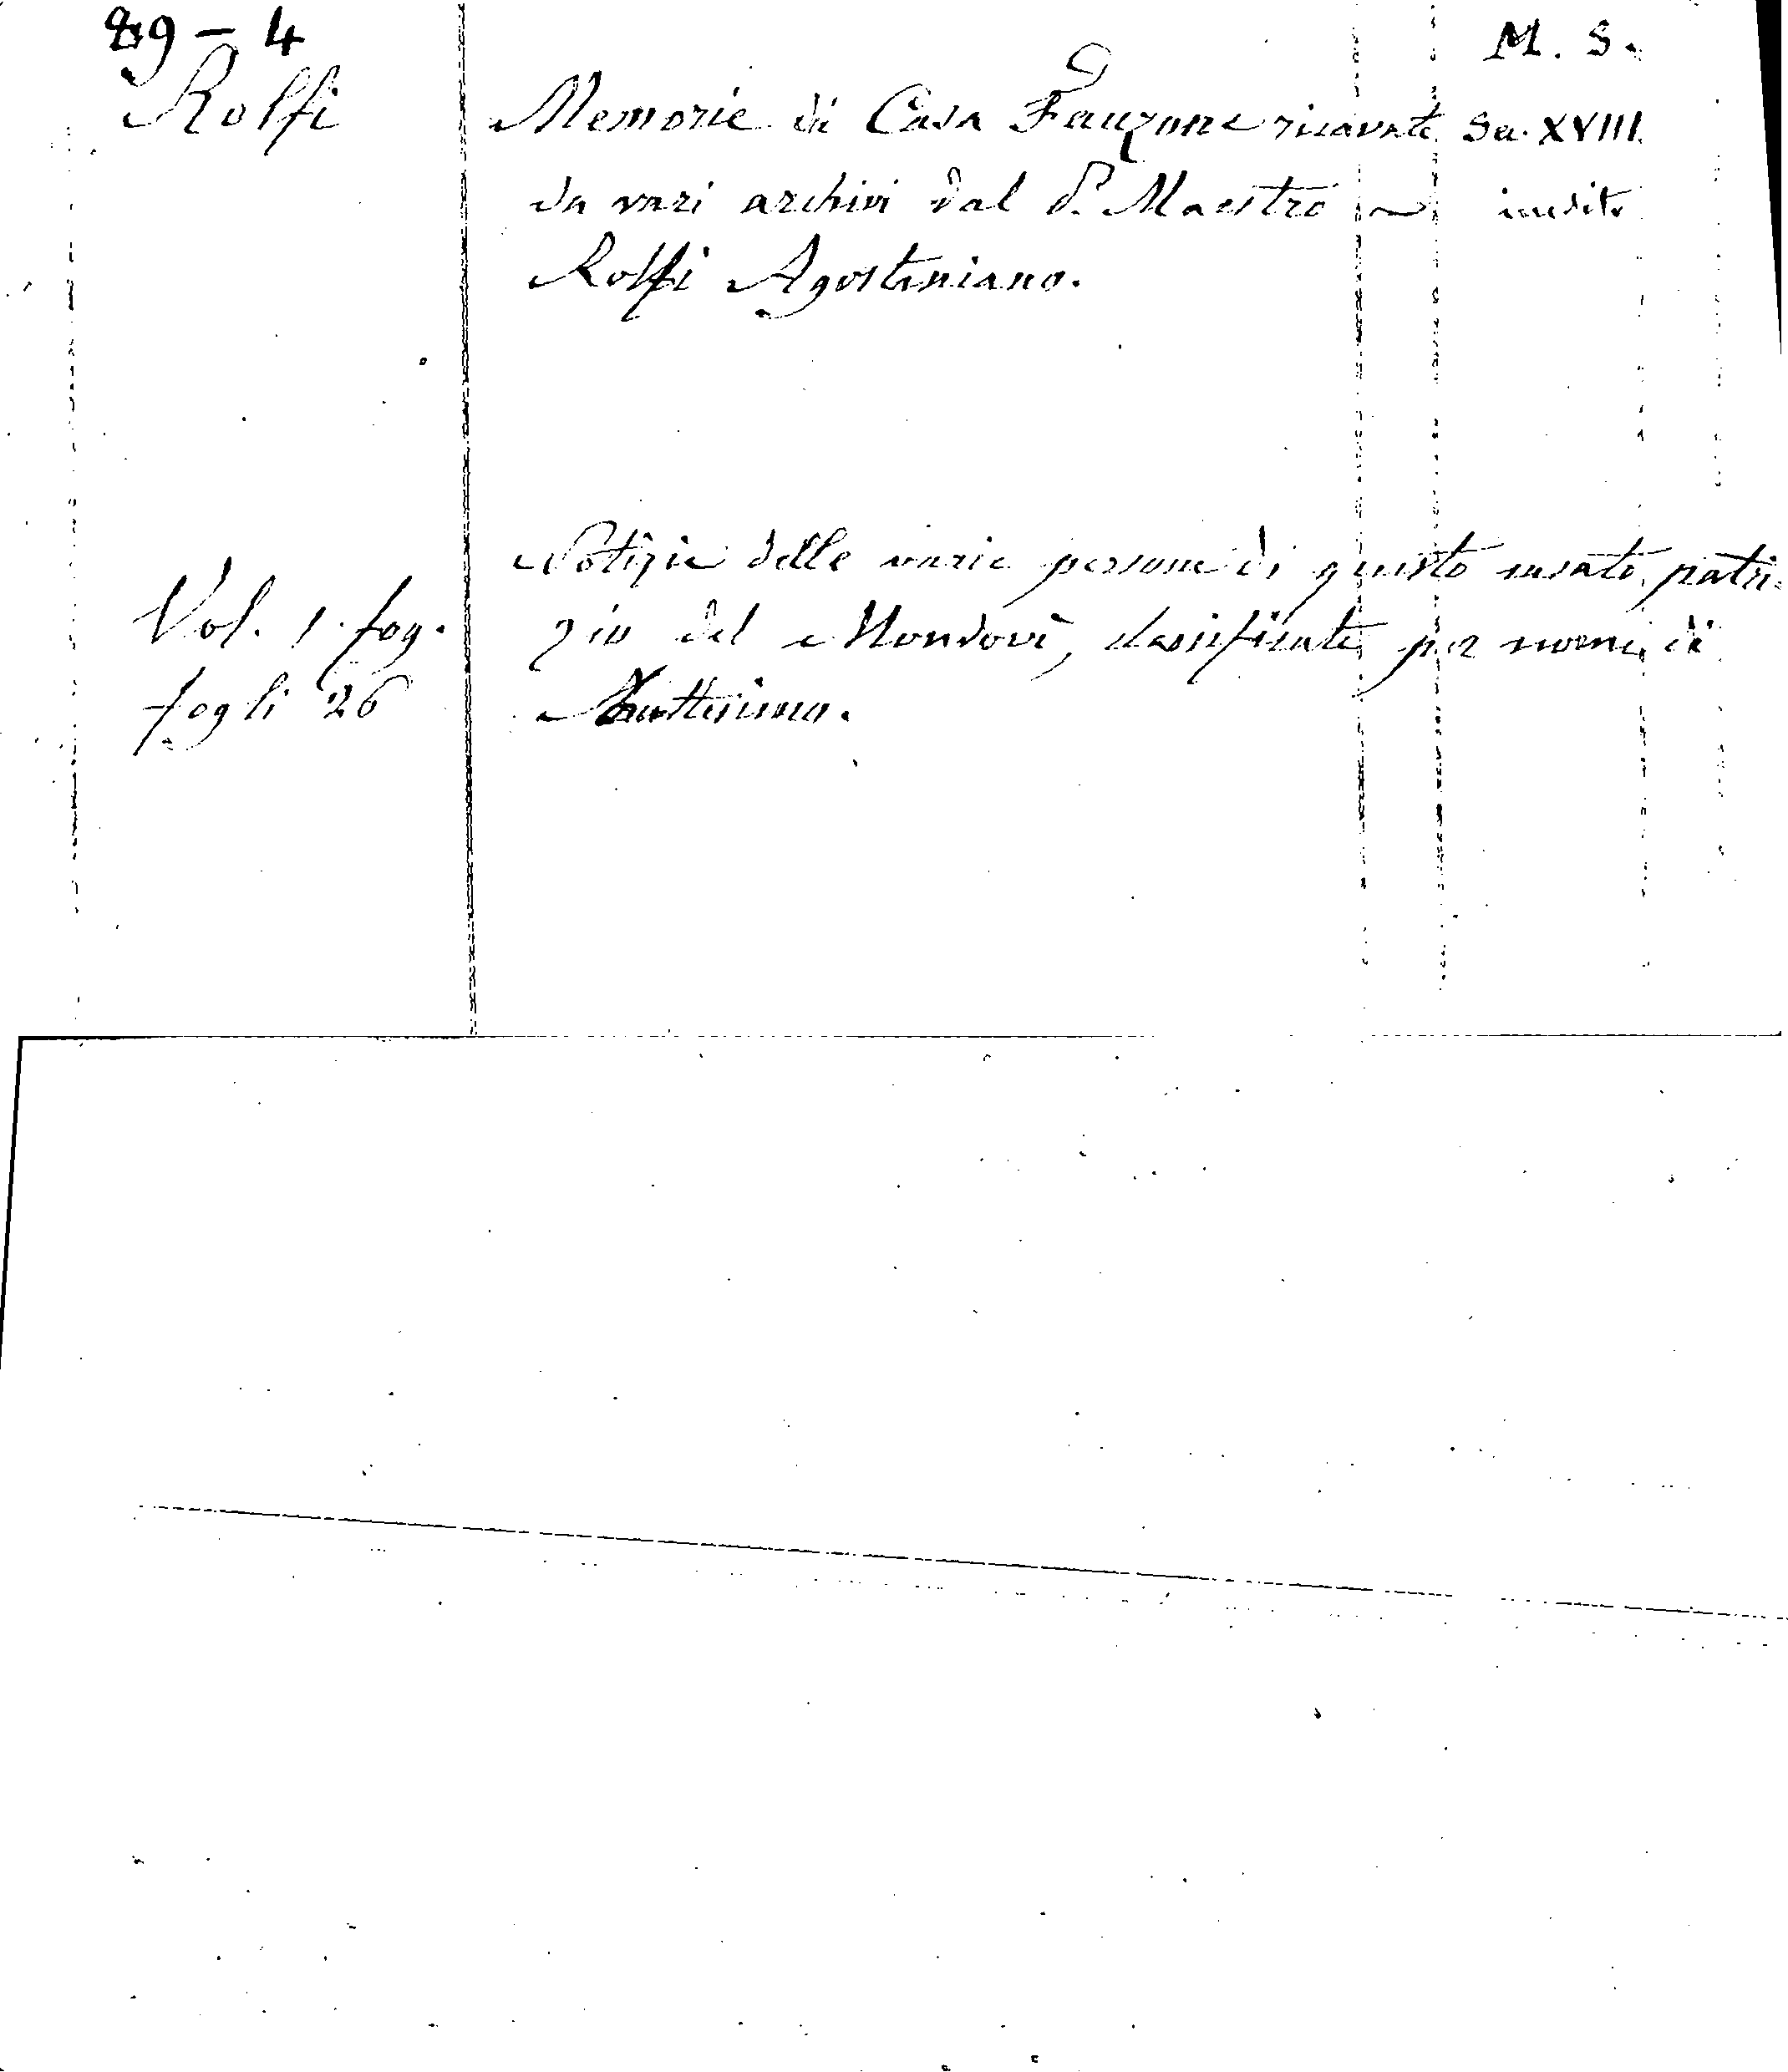 89 - 4
M. S.
Rolfi
Memorie di Casa Fauzone ricavate
Sec. XVIII.
da vari archivi dal P. Maestro
inedito
Rolfi Agostiniano.
Notizie delle varie persone di questo casato patri-
Vol. 1. fog.
zio del Mondovì, classificate per nome di
fogli 26
Battesimo.